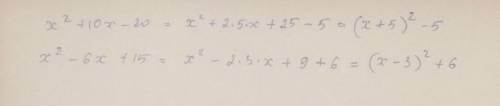 x² + 10x - 20 = x² + 2·5·x + 25 - 5 = (x+5)² - 5
x² - 6x + 15 = x² - 2·3·x + 9 + 6 = (x-3)² + 6